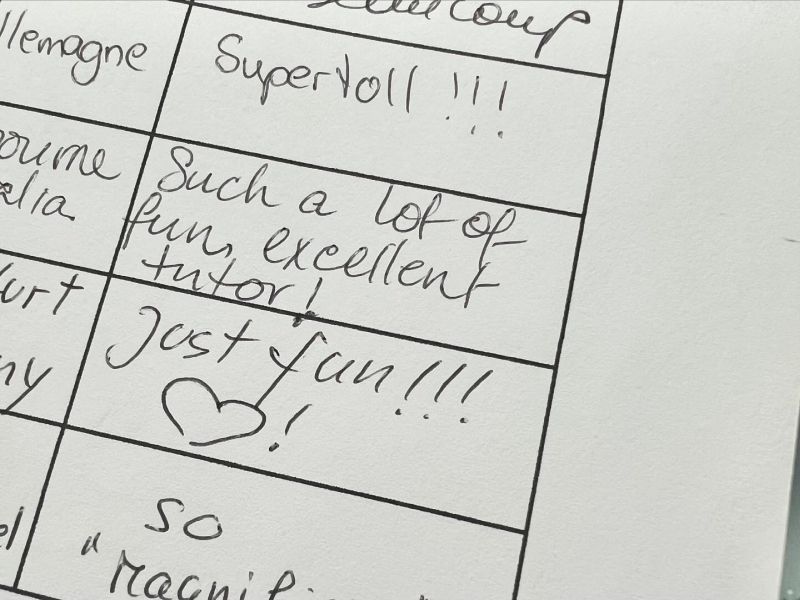 coup
llemagne
Supertoll !!!
ourne
alia
Such a lot of
fun, excellent
tutor!
urt
ny
Just fun!!!
!
el
so
"Magnifi